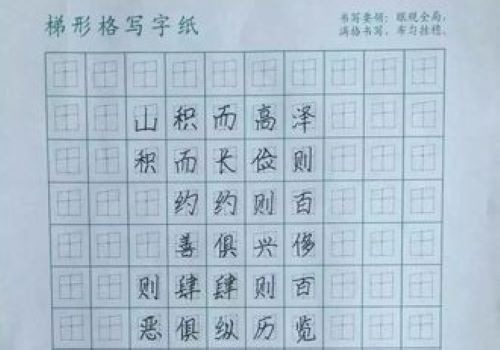 梯形格写字纸
书写要领：眼观全局，
满格书写，布匀挂稳。
山积而高泽
积而长俭则
约约则百
善俱兴侈
则肆肆则百
恶俱纵历览